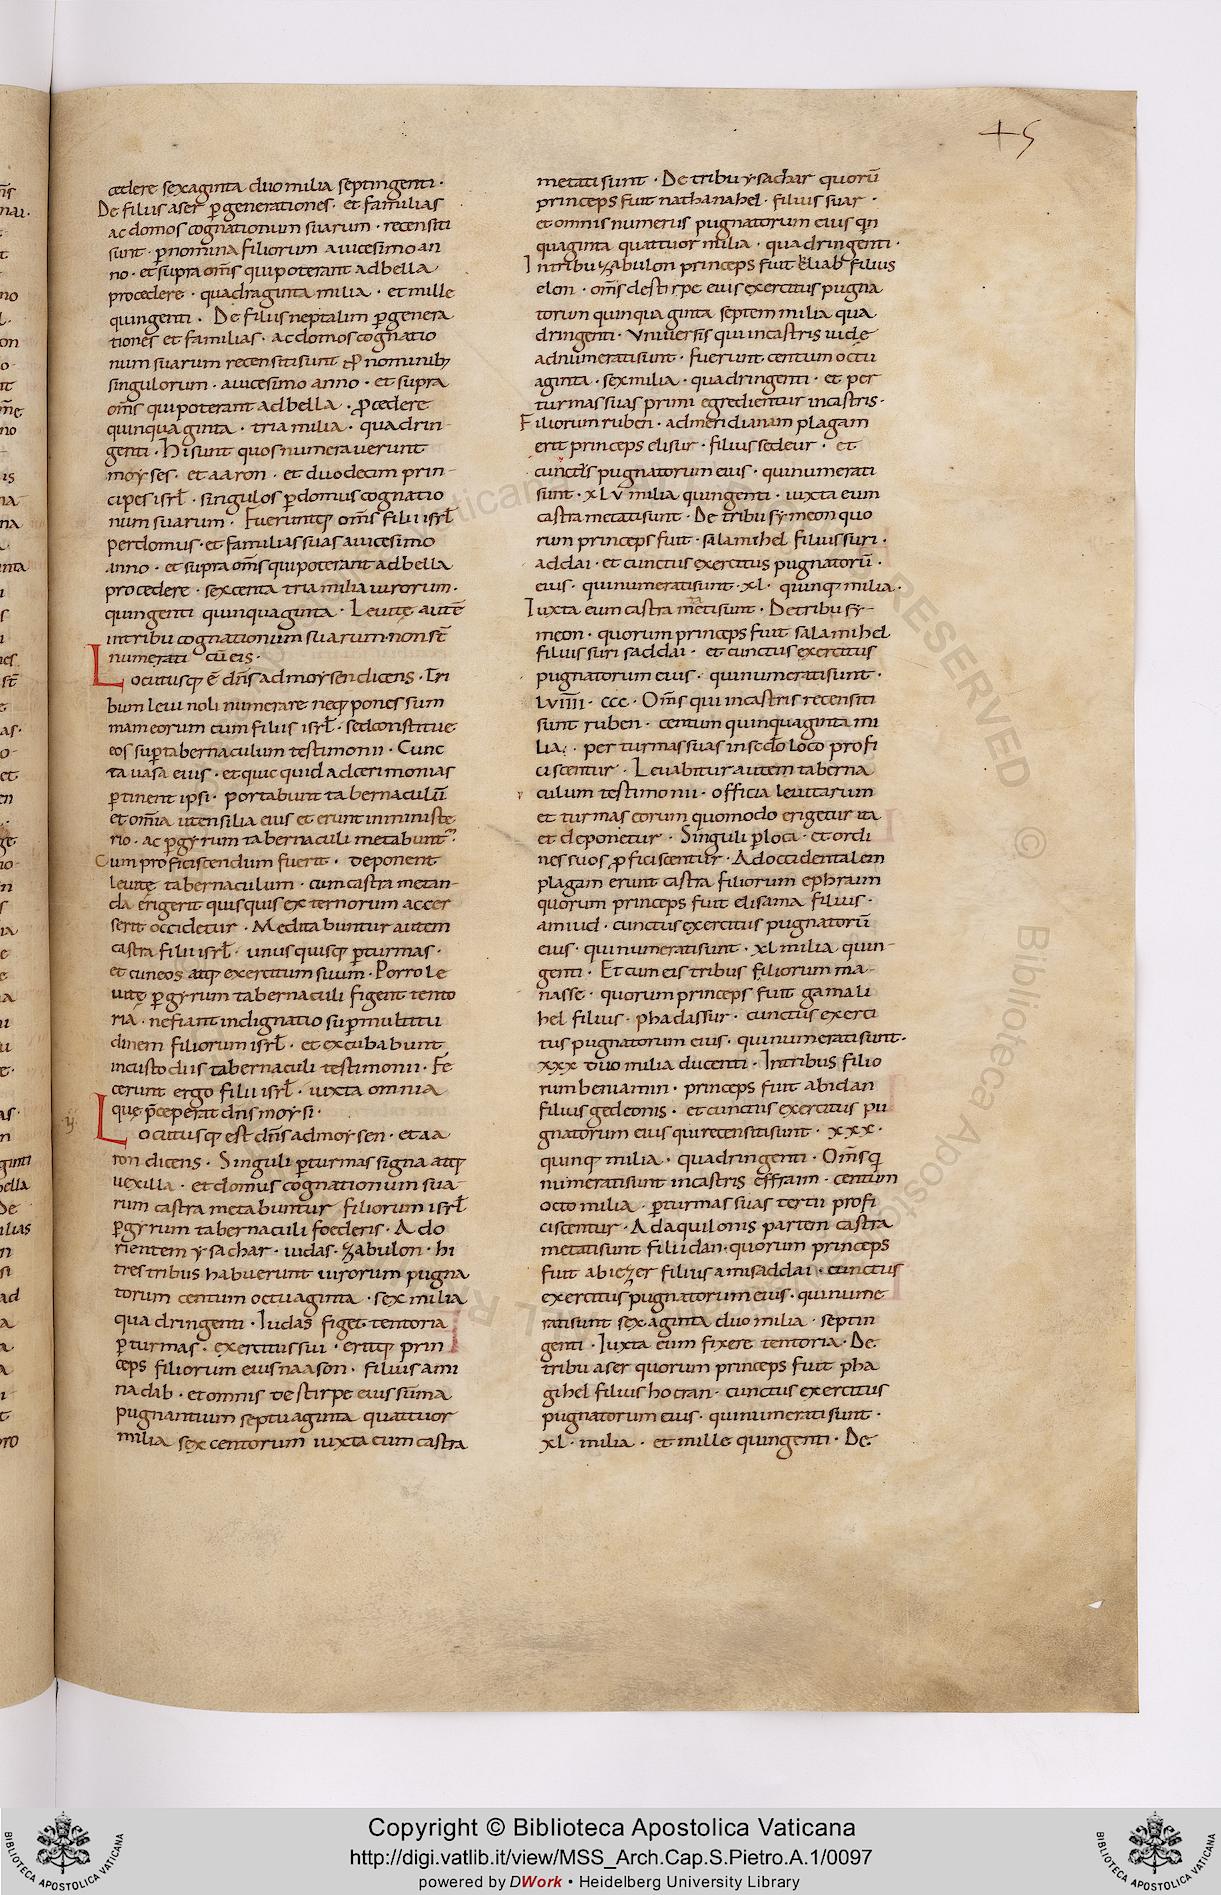 +5
cedere sexaginta duo milia septingenti ·
De filiis aser ꝑ generationes · et familias
ac domos cognationum suarum · recensiti
sunt · ꝑ nomina filiorum a uicesimo an
no · et supra om̄s qui poterant ad bella
procedere · quadraginta milia · et mille
quingenti · De filiis neptalim ꝑ genera
tiones et familias · ac domos cognatio
num suarum recensiti sunt ꝓ nominib;
singulorum · a uicesimo anno · et supra
om̄s qui poterant ad bella · ꝓcedere
quinquaginta · tria milia · quadrin-
genti · Hi sunt quos numerauerunt
moyses · et aaron · et duodecim prin-
cipes isrł · singulos ꝑ domus cognatio
num suarum · Fueruntq; om̄s filii isrł
per domus · et familias suas a uicesimo
anno · et supra om̄s qui poterant ad bella
procedere · sexcenta tria milia uirorum ·
quingenti quinquaginta · Leuitę autē
in tribu cognationum suarum · non st̄
numerati cū eis ·
Locutusq; ē dn̄s ad moysen dicens · Tri
bum leui noli numerare neq; pones sum
mam eorum cum filiis isrł · sed constitue
eos suꝑ tabernaculum testimonii · Cunc
ta uasa eius · et quicquid ad cerimonias
ꝑtinent ipsi · portabunt tabernaculū
et om̄ia utensilia eius et erunt in ministe
rio · ac ꝑ gyrum tabernaculi metabunt̃
Cum proficiscendum fuerit · deponent
leuitę tabernaculum · cum castra metan-
da erigerit quisquis externorum acces
serit occidetur · Metabuntur autem
castra filii isrł · unusquisq; ꝑ turmas ·
et cuneos atq; exercitum suum · Porro le
uitę ꝑ gyrum tabernaculi figent tento
ria · ne fiant indignatio suꝑ multitu
dinem filiorum isrł · et excubabunt
in custodiis tabernaculi testimonii · Fe
cerunt ergo filii isrł · iuxta omnia
quę p̄ceperat dn̄s moysi ·
Locutusq; est dn̄s ad moysen · et aa
ron dicens · Singuli ꝑ turmas signa atq;
uexilla · et domus cognationum sua
rum castra metabuntur filiorum isrł
ꝑ gyrum tabernaculi foederis · Ad o
rientem ysachar · iudas · zabulon · hi
tres tribus habuerunt uirorum pugna
torum centum octuaginta · sex milia
quadringenti · Iudas figet tentoria
ꝑ turmas · exercitus sui · eritq; prin
ceps filiorum eius naason · filius ami
nadab · et omnis de stirpe eius sūma
pugnantium septuaginta quattuor
milia sexcentorum iuxta eum castra
metati sunt · De tribu ysachar quorū
princeps fuit nathanahel · filius suar ·
et omnis numerus pugnatorum eius qīn
quaginta quattuor milia · quadringenti ·
In tribu zabulon princeps fuit eliab filius
elon · om̄s de stirpe eius exercitus pugna
torum quinquaginta septem milia qua
dringenti · Uniuersis qui in castris iudę
adnumerati sunt · fuerunt centum octu
aginta · sex milia · quadringenti · et per
turmas suas primi egredientur in castris ·
Filiorum ruben · ad meridianam plagam
erit princeps elisur · filius sedeur · et
cunctis pugnatorum eius · qui numerati
sunt · xlv milia quingenti · iuxta eum
castra metati sunt · De tribu symeon quo
rum princeps fuit · salamihel filius suri ·
addai · et cunctus exercitus pugnatorū ·
eius · qui numerati sunt · xl · quinq; milia ·
Iuxta eum castra metati sunt · De tribu sy-
meon · quorum princeps fuit salamihel
filius suri saddai · et cunctus exercitus
pugnatorum eius · qui numerati sunt ·
lviiii · ccc · Om̄s qui in castris recensiti
sunt ruben · centum quinquaginta mi
lia · per turmas suas in sedo loco profi
ciscentur · Leuabitur autem taberna
culum testimonii · officia leuitarum
et turmas eorum quomodo erigetur ita
et deponetur · Singuli ꝑ loca · et ordi
nes suos ꝓficiscentur · Ad occidentalem
plagam erunt castra filiorum ephraim
quorum princeps fuit elisama filius ·
amiud · cunctus exercitus pugnatorū
eius · qui numerati sunt · xl milia quin-
genti · Et cum eis tribus filiorum ma-
nasse · quorum princeps fuit gamali
hel filius · phadassur · cunctus exerci
tus pugnatorum eius · qui numerati sunt ·
xxx duo milia ducenti · In tribus filio
rum beniamin · princeps fuit abidan
filius gedeonis · et cunctus exercitus pu
gnatorum eius qui recensiti sunt · xxx ·
quinq; milia · quadringenti · Om̄s q̄
numerati sunt in castris effraim · centum
octo milia · ꝑ turmas suas tertii profi
ciscentur · Ad aquilonis partem castra
metati sunt filii dan · quorum princeps
fuit abiezer filius amisaddai · cunctus
exercitus pugnatorum eius · qui nume
rati sunt sexaginta duo milia · septin
genti · Iuxta eum fixere tentoria · De
tribu aser quorum princeps fuit pha
gihel filius hocran · cunctus exercitus
pugnatorum eius · qui numerati sunt ·
xl · milia · et mille quingenti · De
Copyright © Biblioteca Apostolica Vaticana
http://digi.vatlib.it/view/MSS_Arch.Cap.S.Pietro.A.1/0097
powered by DWork • Heidelberg University Library